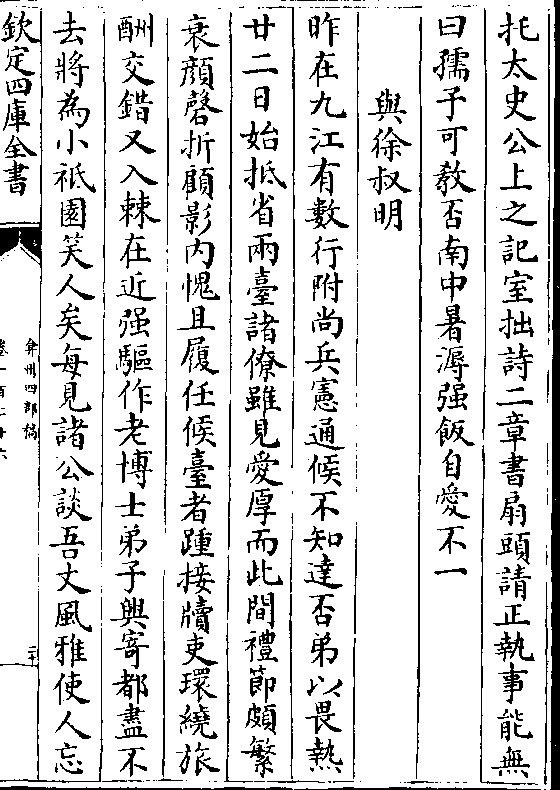 托太史公上之記室拙詩二章書扇頭請正執事能無
曰孺子可敎否南中暑溽强飯自愛不一
與徐叔明
昨在九江有數行附尚兵憲通候不知達否弟以畏熱
廿二日始抵省兩臺諸僚雖見愛厚而此間禮節頗繁
衰顔磬折顧影内愧且履任候臺者踵接牘吏環繞旅
酬交錯又入棘在近强驅作老博士弟子興寄都盡不
去將為小祗園笑人矣每見諸公談吾丈風雅使人忘
欽定四庫全書
弇州四部稿